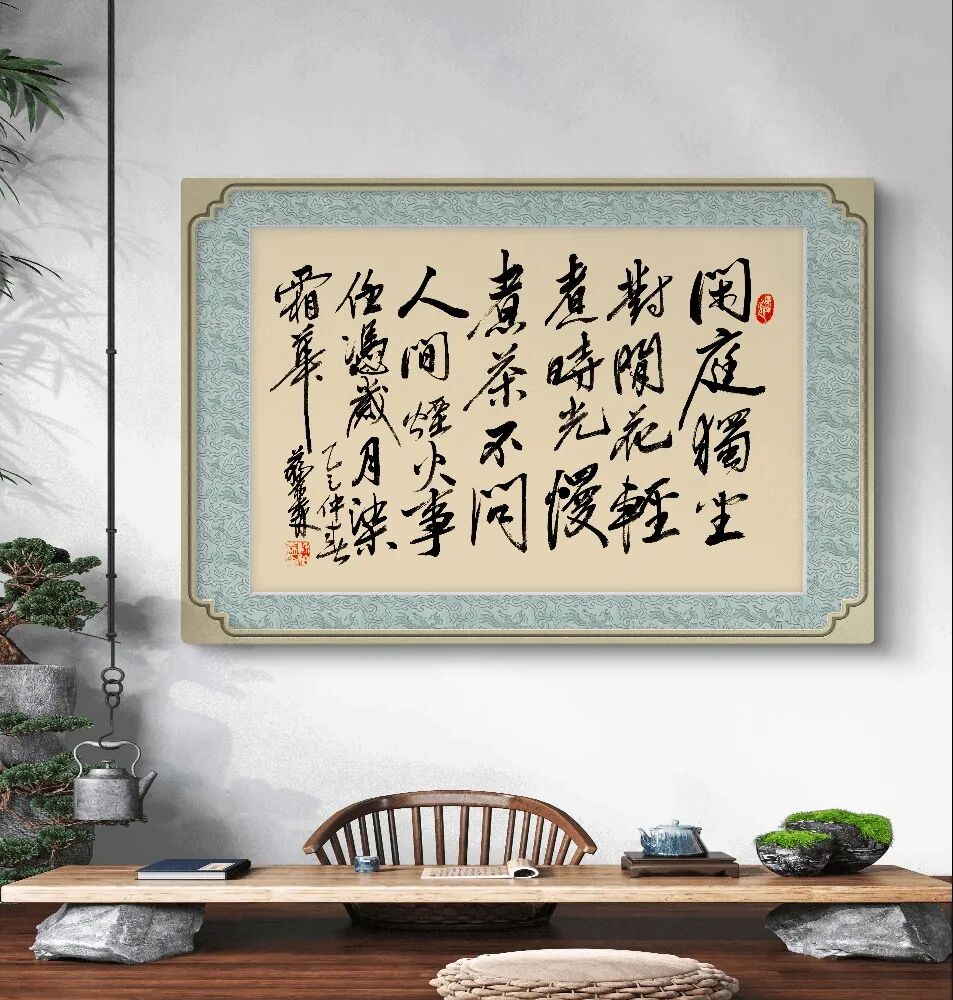 閑庭獨坐
對閒花輕
煮時光慢
煮茶不問
人間煙火事
任憑歲月染
霜華
乙巳仲春